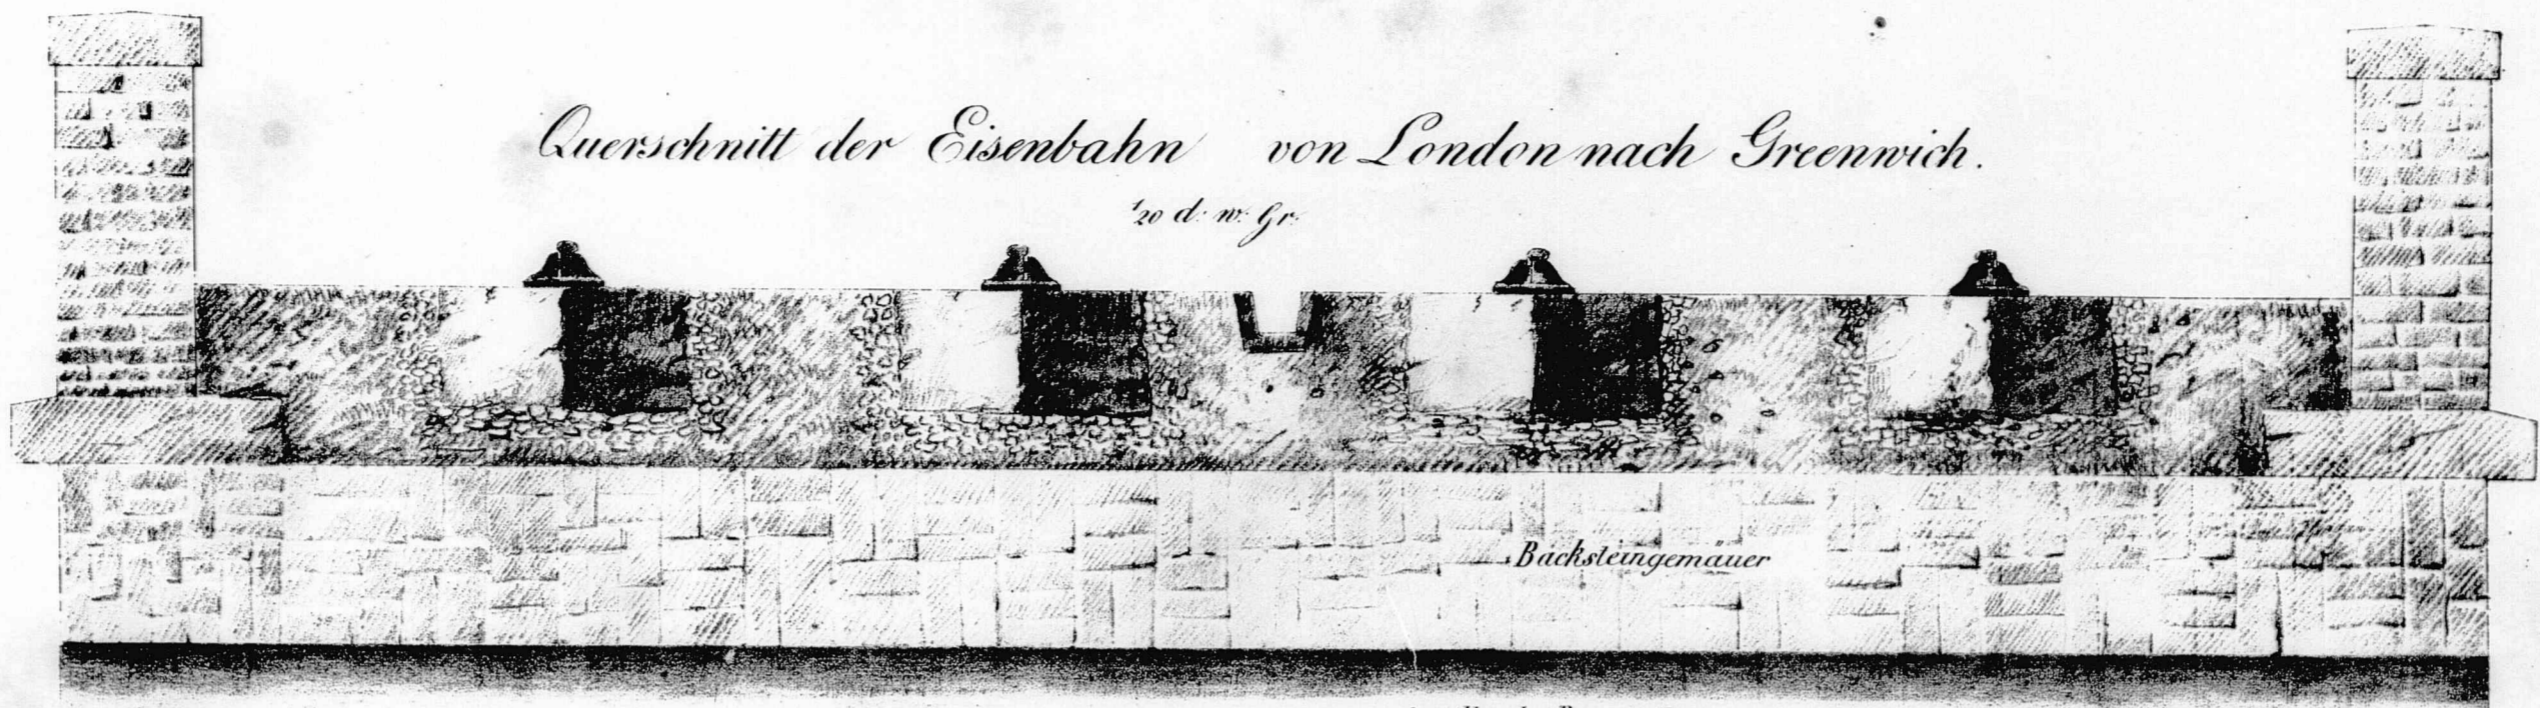 Querschnitt der Eisenbahn von London nach Greenwich.
1/20 d: w: Gr:
Backsteingemäuer